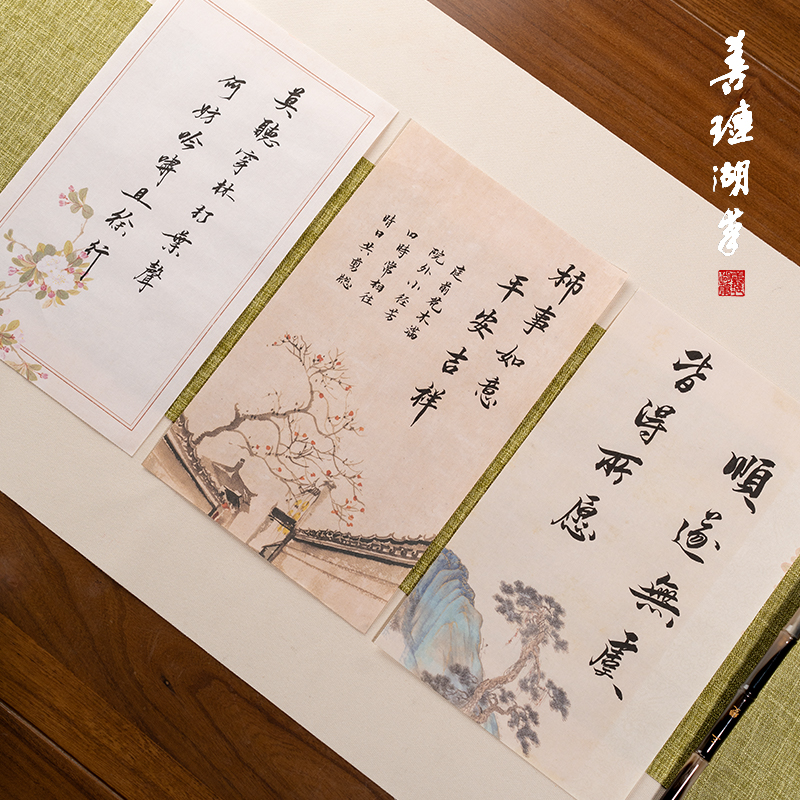 莫聽穿林打葉聲
何妨吟嘯且徐行
柿事如意
平安吉祥
庭前花木滿
院外小徑芳
四時常相往
晴日共剪窓
順遂無虞
皆得所愿
善璉湖筆